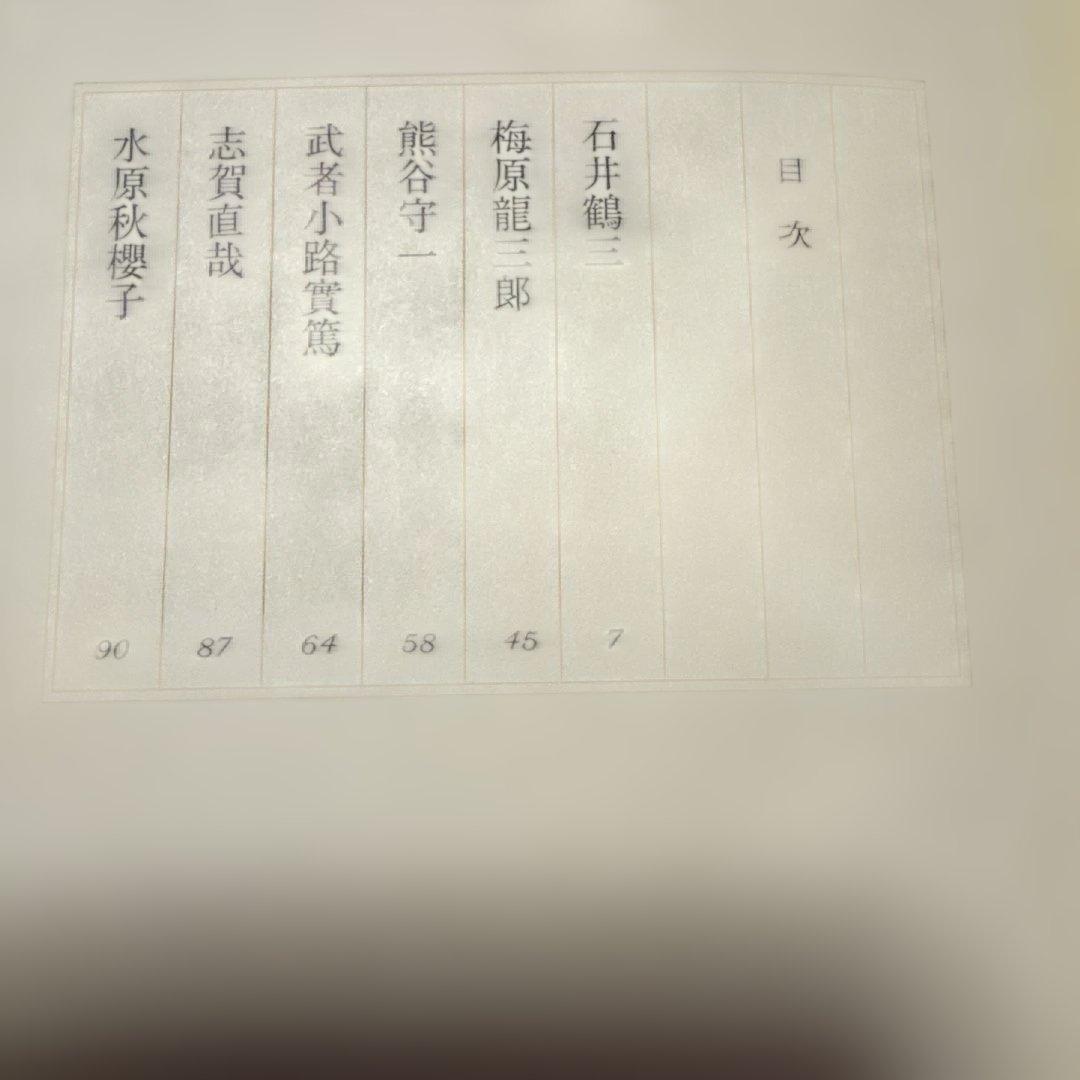 目次
石井鶴三 7
梅原龍三郎 45
熊谷守一 58
武者小路實篤 64
志賀直哉 87
水原秋櫻子 90